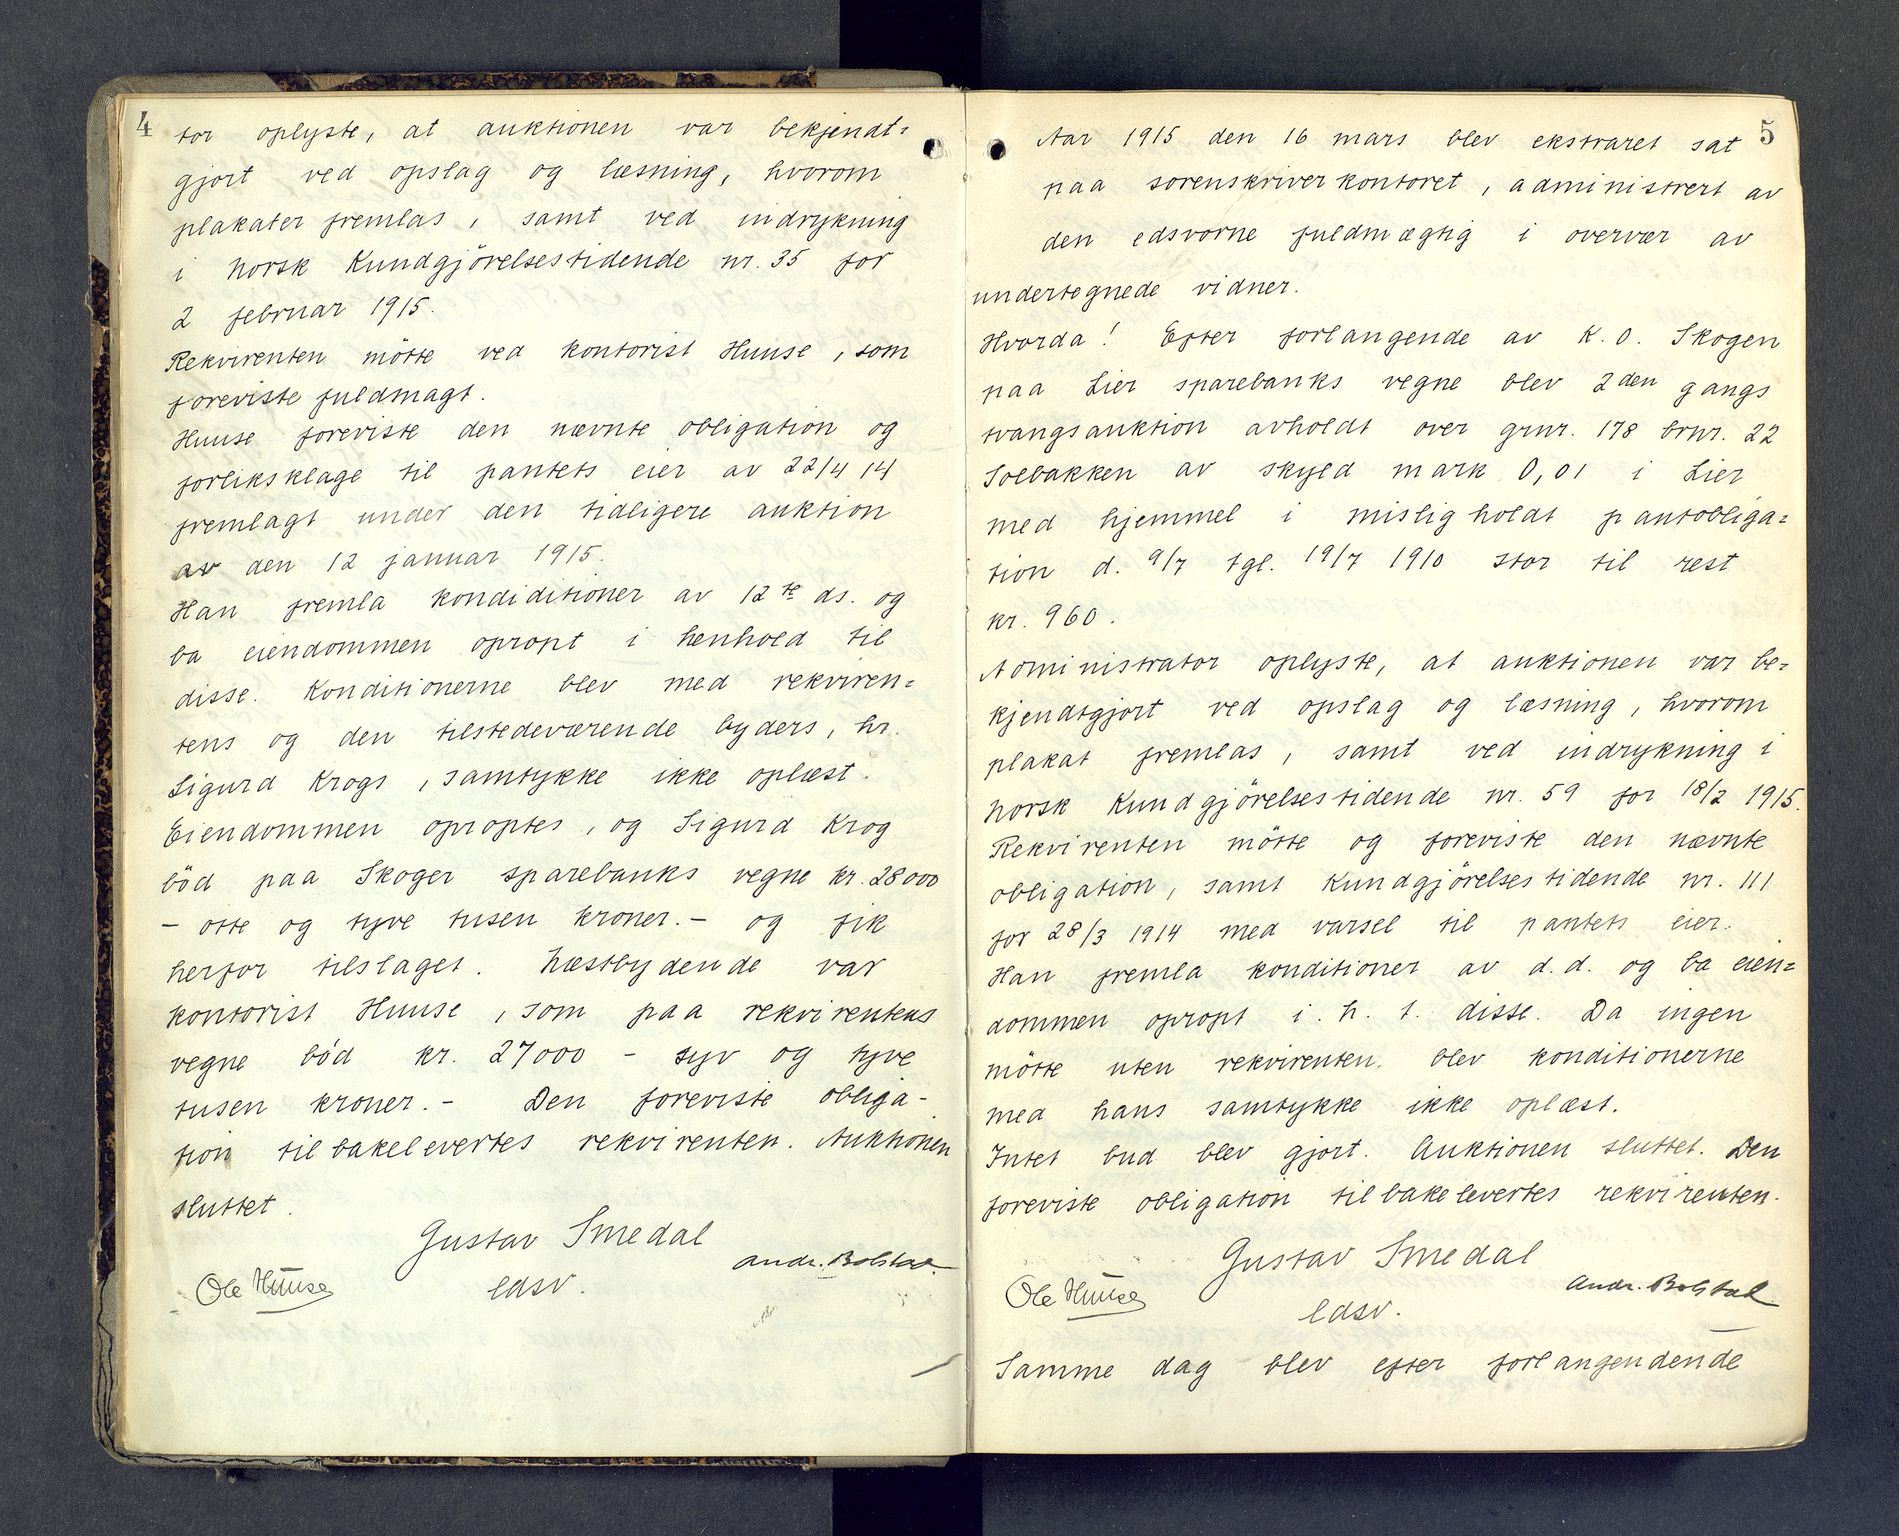 4
tor oplyste, at auktionen var bekjendt=
gjort ved opslag og læsning, hvorom
plakater fremlas, samt ved indrykning
i Norsk Kundgjörelsestidende nr. 35 for
2 februar 1915.
Rekvirenten mötte ved kontorist Huuse, som
foreviste fuldmagt.
Huuse foreviste den nævnte obligation og
forliksklage til pantets eier av 22/4 14
fremlagt under den tidligere auktion
av den 12 januar 1915.
Han fremla kondiditioner av 12te ds. og
ba eiendommen opropt i henhold til
disse. Konditionerne blev med rekviren=
tens og den tilstedeværende byders, hr.
Sigurd Krogs, samtykke ikke oplæst.
Eiendommen oproptes, og Sigurd Krog
böd paa Skoger sparebanks vegne kr. 28000
- otte og tyve tusen kroner. - og fik
herfor tilslaget. Næstbydende var
kontorist Huuse, som paa rekvirentens
vegne böd kr. 27000 - syv og tyve
tusen kroner. - Den foreviste obliga-
tion tilbakelevertes rekvirenten. Auktionen
sluttet.
Gustav Smedal
edsv.
Ole Huuse
Andr. Bolstad.
5
Aar 1915 den 16 mars blev ekstraret sat
paa sorenskriverkontoret, administrert av
den edsvorne fuldmægtig i overvær av
undertegnede vidner.
Hvorda! Efter forlangende av K. O. Skogen
paa Lier sparebanks vegne blev 2den gangs
tvangsauktion avholdt over grnr. 178 brnr. 22
Solbakken av skyld mark 0,01 i Lier
med hjemmel i misligholdt pantobliga=
tion d. 9/7 tgl. 19/7 1910 stor til rest
kr. 960.
Administrator oplyste, at auktionen var be=
kjendtgjort ved opslag og læsning, hvorom
plakat fremlas, samt ved indrykning i
Norsk Kundgjörelsestidende nr. 59 for 18/2 1915.
Rekvirenten mötte og foreviste den nævnte
obligation, samt Kundgjörelsestidende nr. 111
for 28/3 1914 med varsel til pantets eier.
Han fremla konditioner av d.d. og ba eien=
dommen opropt i. h. t. disse. Da ingen
mötte uten rekvirenten. blev konditionerne
med hans samtykke ikke oplæst.
Intet bud blev gjort. Auktionen sluttet. Den
foreviste obligation tilbakelevertes rekvirenten.
Gustav Smedal
edsv.
Ole Huuse
Andr. Bolstad.
Samme dag blev efter forlangendende